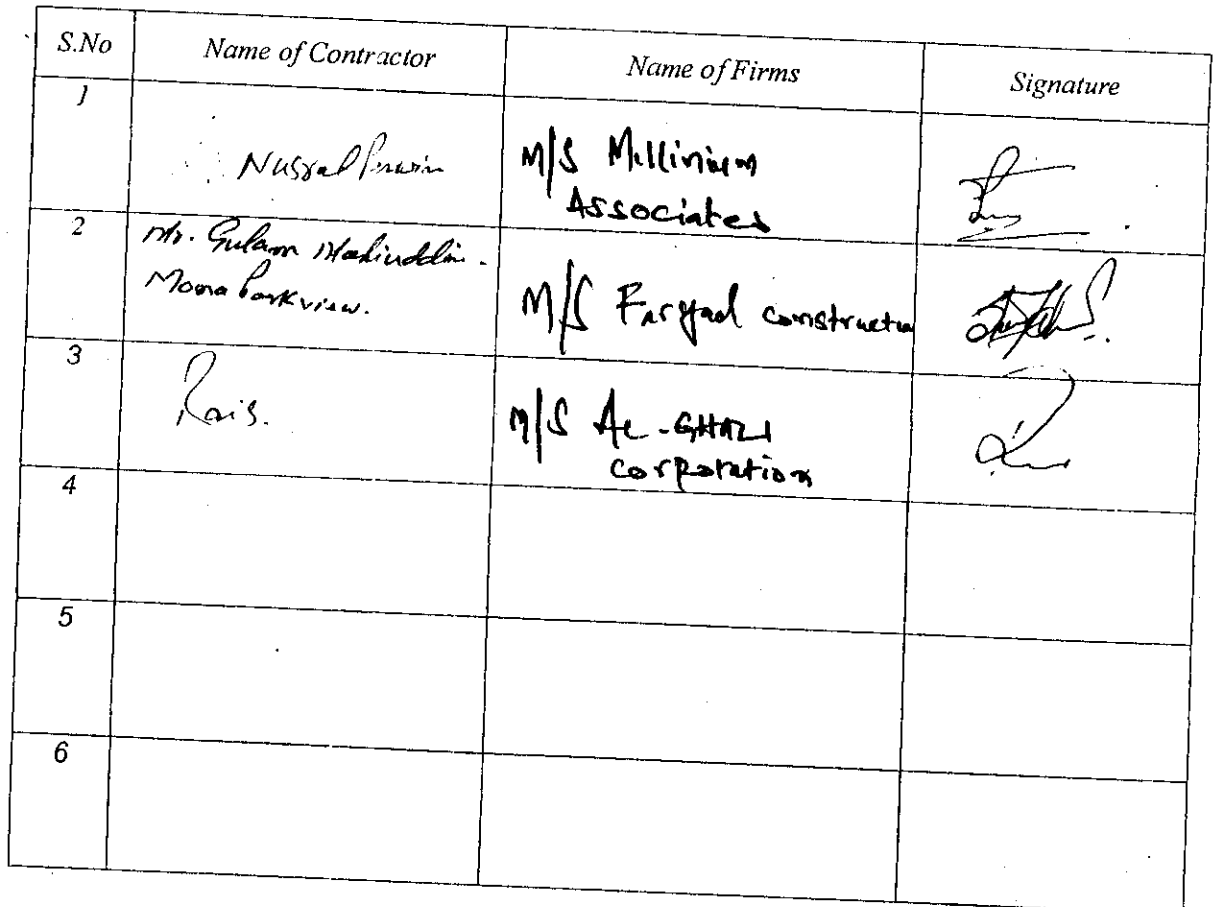 S.No Name of Contractor Name of Firms Signature
1
Nusrat Parvin M/S Millinium
Associates
2 Mr. Gulam Mahiuddin.
Mona Parkview. M/S Faryad constructio
3
Rais. M/S AL-GHAZI
Corporation
4
5
6